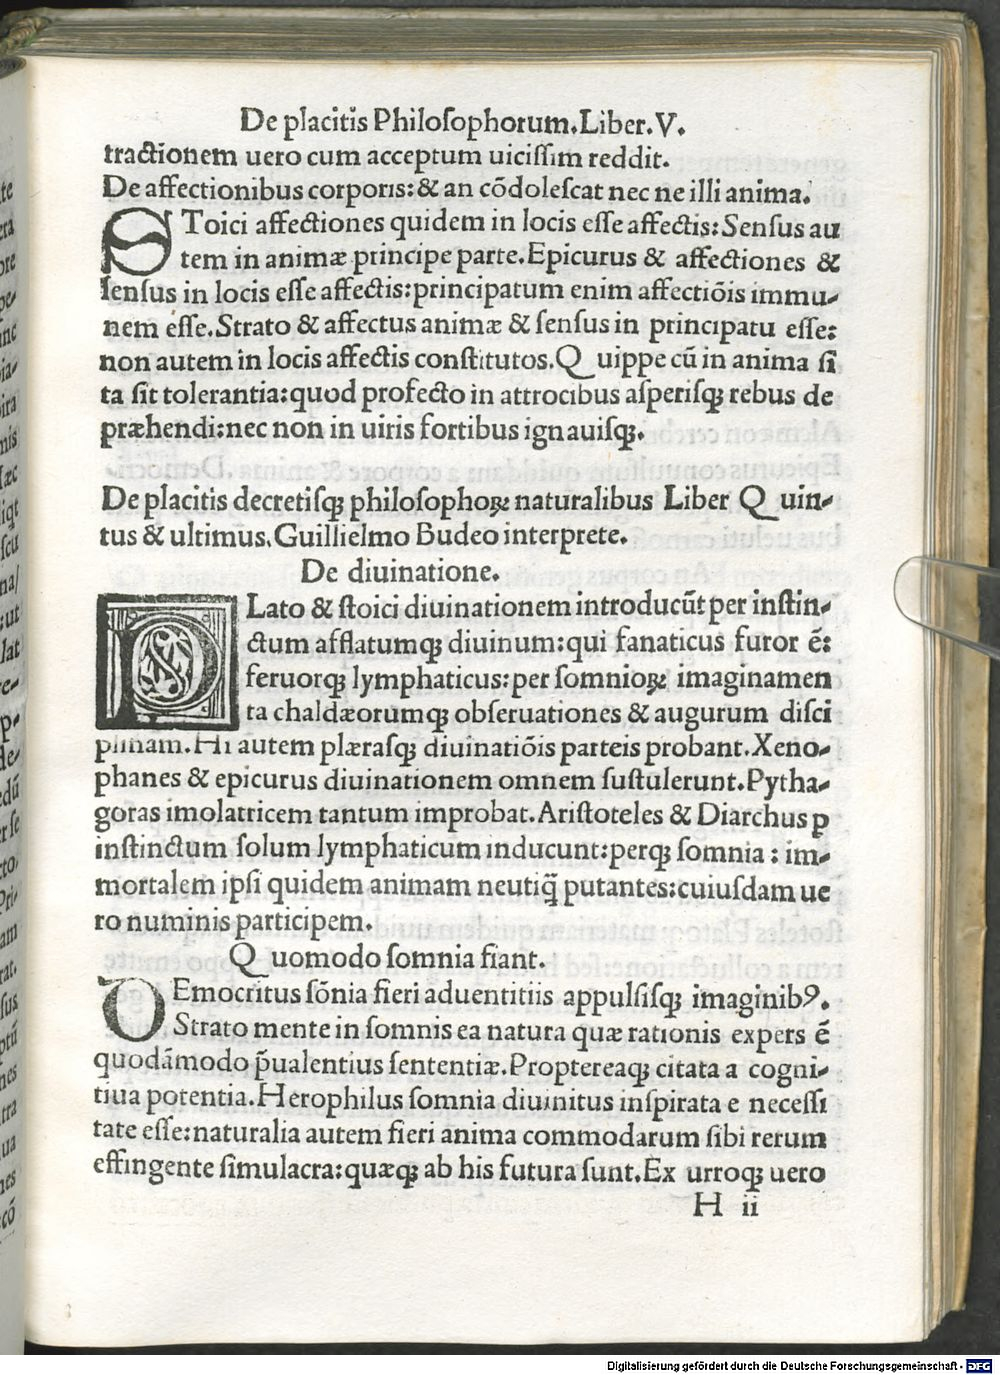 De placitis Philoſophorum.Liber.V.
tractionem uero cum acceptum uiciſſim reddit.
De affectionibus corporis:& an cōdoleſcat nec ne illi anima.
SToici affectiones quidem in locis eſſe affectis:Senſus au
tem in animæ principe parte.Epicurus & affectiones &
ſenſus in locis eſſe affectis:principatum enim affectiōis immu-
nem eſſe.Strato & affectus animæ & ſenſus in principatu eſſe:
non autem in locis affectis conſtitutos.Quippe cū in anima ſi
ta ſit tolerantia:quod profecto in attrocibus aſperiſqꝫ rebus de
præhendi:nec non in uiris fortibus ignauiſqꝫ.
De placitis decretiſqꝫ philoſophoꝝ naturalibus Liber Quin-
tus & ultimus.Guillielmo Budeo interprete.
De diuinatione.
PLato & ſtoici diuinationem introducūt per inſtin-
ctum afflatumqꝫ diuinum:qui fanaticus furor ē:
feruorqꝫ lymphaticus:per ſomnioꝝ imaginamen
ta chaldæorumqꝫ obſeruationes & augurum diſci
plinam.Hi autem plæraſqꝫ diuinatiōis parteis probant.Xeno-
phanes & epicurus diuinationem omnem ſuſtulerunt.Pytha-
goras imolatricem tantum improbat.Ariſtoteles & Diarchus ꝑ
inſtinctum ſolum lymphaticum inducunt:perqꝫ ſomnia : im-
mortalem ipſi quidem animam neutiq̄ putantes:cuiuſdam ue
ro numinis participem.
Quomodo ſomnia fiant.
DEmocritus ſōnia fieri aduentitiis appulſiſqꝫ imaginibꝰ.
Strato mente in ſomnis ea natura quæ rationis expers ē
quodāmodo p̄ualentius ſententiæ.Proptereaqꝫ citata a cogni-
tiua potentia.Herophilus ſomnia diuinitus inſpirata e neceſſi
tate eſſe:naturalia autem fieri anima commodarum ſibi rerum
effingente ſimulacra:quæqꝫ ab his futura ſunt.Ex urroqꝫ uero
H ii
Digitalisierung gefördert durch die Deutsche Forschungsgemeinschaft - DFG